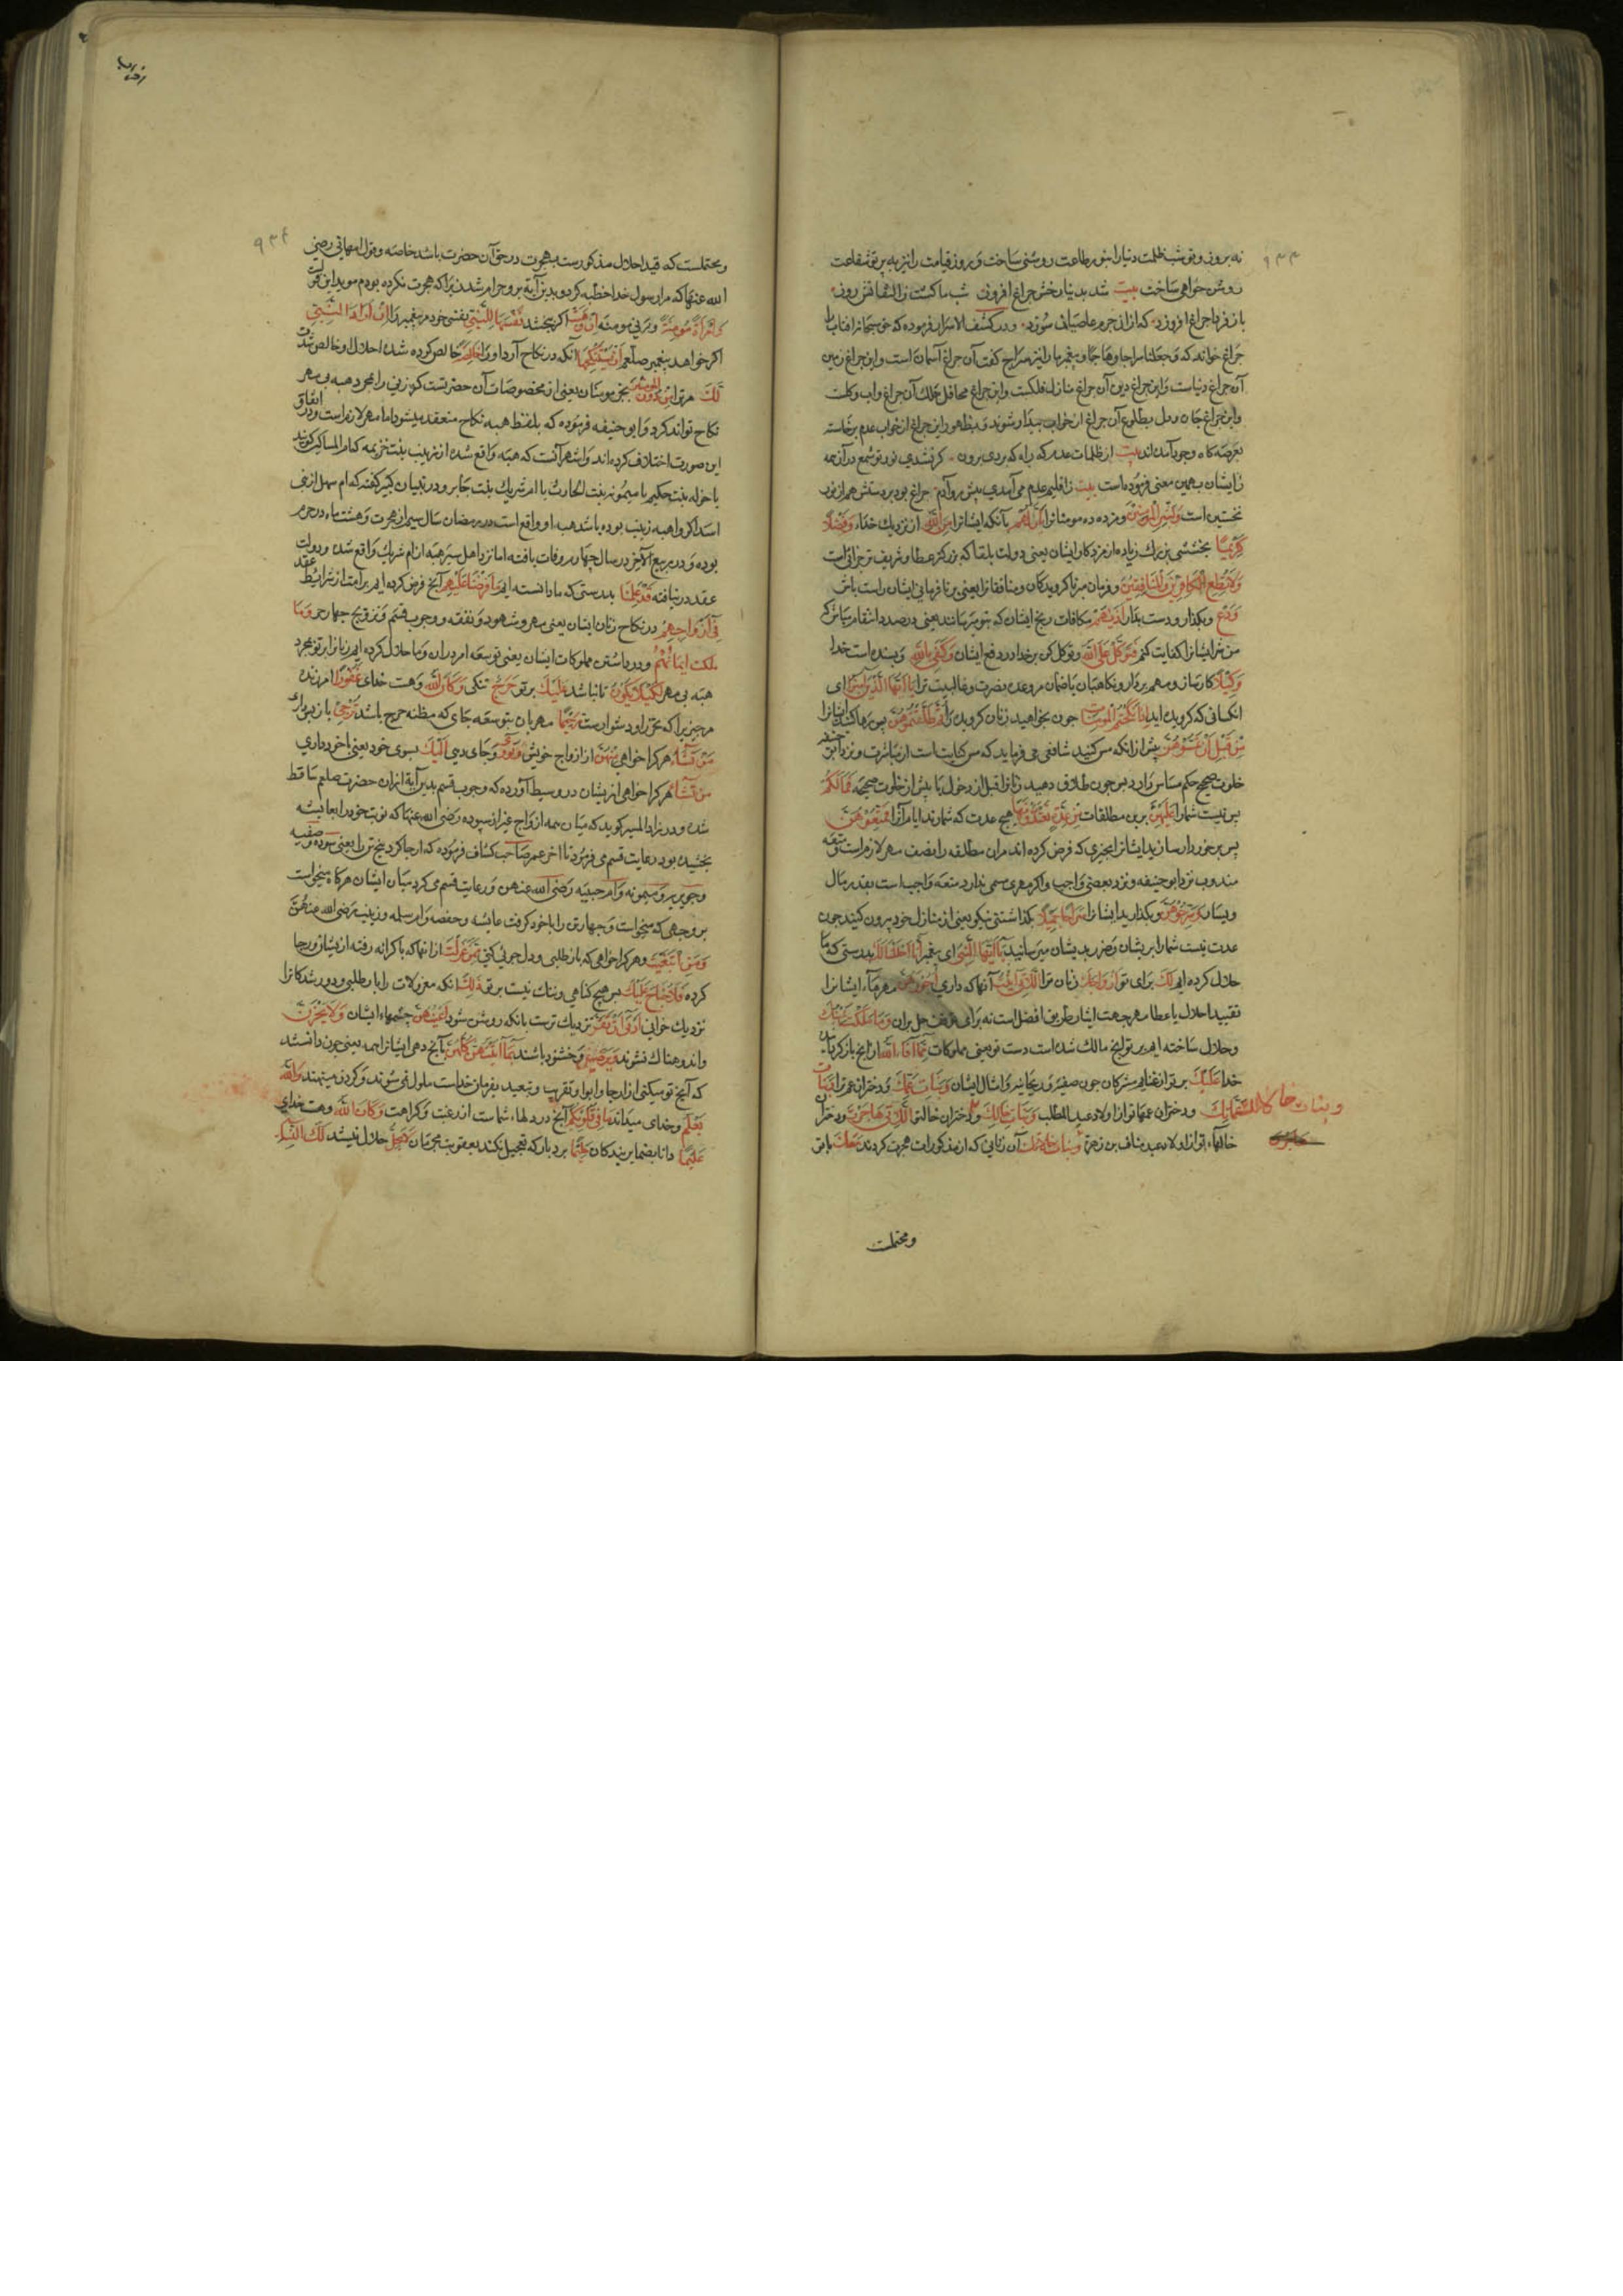 نه بروز و تو شب ظلمت دنیا را بنور طاعت روشنی ساخت و بروز قیامت را نیز به پرتو شفاعت
روشن خواهی ساخت بیت شد بدنیا رخش چراغ افروز شب ما کشت ز التفاتش روز
باز فردا چراغ افروزد که از ان جرم عاصیان سوزد و در کشف الاسرار فرموده که حق سبحانه افتاب را
چراغ خواند که وجعلنا سراجا وهاجا و پیغمبر ما را نیز سراج کفت آن چراغ آسمان است و این چراغ زمین
آن چراغ دنیاست و این چراغ دین آن چراغ منازل فلکست و این چراغ محافل ملک آن چراغ و آب و کلست
و این چراغ جان و دل بطلوع آن چراغ از خواب بیدار شوند و بظهور این چراغ از خواب عدم برخاسته
بعرصه کاه وجود آمده اند بیت از ظلمات عدم که راه که بردی برون کر نشدی نور تو شمع در آن همه
ز ایشان بهمین معنی فرموده است بیت ز اقلیم عدم می آمدی پیش رو آدم چراغی بود بر دستش هم از نور
نخستین است وبشر المؤمنین و مژده ده مومنانرا بان لهم بآنکه ایشانرا من الله از نزدیک خداء فضلا
کبیرا بخششی بزرک زیاده از مزد کار ایشان یعنی دولت بلقا که بزرکتر عطا و شریف تر جزائی است
ولا تطع الکافرین والمنافقین و فرمان مبر ناکرویدکان و منافقانرا یعنی بر نافرمانی ایشان راست باش
ودع و بکذار و دست بدار اذیهم مکافات رنج ایشان که بتو میرسانند یعنی در صدد انتقام مباش که
من شر ایشانرا کفایت کنم فتوکل علی الله و توکل کن بر خدا در دفع ایشان وکفی بالله و بسنده است خدا
وکیلا کارساز و مهم بردار و نکاهبان یا ضمان مر وعده نصرت و غالبیت ترا یا ایها الذین آمنوا ای
انکسانی که کرویده اید اذا نکحتم المؤمنات چون بخواهید زنان کرویده را ثم طلقتموهن پس رها کنید ایشانرا
من قبل ان تمسوهن پیش از انکه مس کنید شافعی می فرماید که مس کنایت است از مباشرت و نزد ابو حنیفه
خلوت صحیح حکم مساس دارد پس چون طلاق دهید زنانرا قبل از دخول یا پیش از خلوت صحیحه فما لکم
پس نیست شما را علیهن برین مطلقات من عدة تعتدونها هیچ عدت که شمارند ایام آنرا فمتعوهن
پس برخوردار سازید ایشانرا بچیزی که فرض کرده اند مران مطلقه را نصف مهر لازم است و متعه
مندوب نزد ابو حنیفه و نزد بعضی واجب و اکر مهری مسمی ندارد متعه واجب است بقدر مال
وسرحوهن و بکذارید ایشانرا سراحا جمیلا کذاشتنی نیکو یعنی از منازل خود بیرون کنید چون
عدت نیست شما را بر یشان و ضرر بدیشان میرسانید یا ایها النبی ای پیغمبر انا احللنا لک بدرستی که ما
حلال کرده ایم لک برای تو ازواجک زنان ترا اللاتی آتیت آنها که داری اجورهن مهرهاء ایشانرا
تقیید احلال باعطا مهر جهت ایثار طریق افضل است نه برای توقف حل بران وما ملکت یمینک
و حلال ساخته ایم بر تو انچ مالک شده است دست تو یعنی مملوکات مما افاء الله از انچ باز کردانیده
خدا علیک بر تو از غنایم مشرکان چون صفیه و ریحانه و امثال ایشان وبنات عمک و دختران عم ترا وبنات
عماتک و دختران عمهاتو از اولاد عبد المطلب وبنات خالک و دختران خال تو اللاتی هاجرن و دختران
خالهاء تو از اولاد عبد مناف بن زهره وبنات خالاتک آن زنانی که از مذکورات هجرت کردند معک با تو
وبنات خالاتک
ومحتملست
۹۳۴
و محتملست که قید احلال مذکورست بهجرت در حق آن حضرت باشد خاصه و قول ام هانی رضی
الله عنها که مرا رسول خدا خطبه کرد و بدین آیه برو حرام شدم زیرا که هجرت نکرده بودم موید این قول
وامرأة مؤمنة و زنی مومنه ان وهبت اکر ببخشد نفسها للنبی نفس خود مر پیغمبر را ان اراد النبی
اکر خواهد پیغمبر صلعم ان یستنکحها آنکه در نکاح آرد او را خالصة خالص کرده شده احلال او خالص شدن
لک مر ترا من دون المؤمنین بجز مومنان یعنی از مخصوصات آن حضرتست که زنی را بمجرد هبه بی مهر
نکاح تواند کرد و ابو حنیفه فرموده که بلفظ هبه نکاح منعقد میشود اما مهر لازم است و در اتفاق
این صورت اختلاف کرده اند و اشهر آنست که هبه واقع شده از زینب بنت خزیمه که ام المساکین کویند
یا خوله بنت حکیم یا میمونه بنت الحارث یا ام شریک بنت جابر و در تبیان کبیر کفته که ام سهل از بنی
اسد اکر واهبه زینب بوده باشد هبه او واقع است در رمضان سال سیم از هجرت و هشت ماه در حرم
بوده و در ربیع الآخر در سال چهارم وفات یافته اما نزد اهل سیر هبه از ام شریک واقع شده و دولت
عقد در نیافته قد علمنا بدرستی که ما دانسته ایم ما فرضنا علیهم آنچ فرض کرده ایم بر امت از شرایط عقد
فی ازواجهم در نکاح زنان ایشان یعنی مهر و شهود و نفقه و وجوب قسم و تزویج چهار حره وما
ملکت ایمانهم و در داشتن مملوکات ایشان یعنی توسعه امر در ان و ما حلال کرده ایم زنانرا بر تو بمجرد
هبه بی مهر لکیلا یکون تا نباشد علیک بر تو حرج تنکی وکان الله و هست خدای غفورا آمرزنده
مر چیزیرا که تحرز او دشوارست رحیما مهربان بتوسعه جای که مظنه حرج باشد ترجی باز پس داری
من تشاء هر کرا خواهی منهن از ازواج خویش وتؤوی و جای دهی الیک بسوی خود یعنی باخود داری
من تشاء هر کرا خواهی از یشان در وسیط آورده که وجوب قسم بدین آیه از ان حضرت صلعم ساقط
شده و در زاد المسیر کوید که میان همه ازواج غیر از سوده رضی الله عنها که نوبت خود را بعایشه
بخشیده بود رعایت قسم می فرمود تا آخر عمر صاحب کشاف فرموده که ارجا کرد پنج تن را یعنی سوده و صفیه
و جویریه و میمونه و ام حبیبه رضی الله عنهن و رعایت قسم می کرد میان ایشان هرکاه میخواست
بر وجهی که میخواست و چهار تن را باخود کرفت عایشه و حفصه و ام سلمه و زینب رضی الله عنهن
ومن ابتغیت و هر کرا خواهی که باز طلبی و دل جوئی کنی ممن عزلت از انها که با کرانه رفته از یشان و رجا
کرده فلا جناح علیک پس هیچ کناهی و تنک نیست بر تو ذلک انکه معزولات را باز طلبی و دور شدکانرا
نزدیک خوانی ادنی ان تقر نزدیک ترست بانکه روشن شود اعینهن چشمهاء ایشان ولا یحزن
و اندوهناک نشوند ویرضین و خشنود باشند بما آتیتهن کلهن بآنچ دهی ایشانرا همه یعنی چون دانستند
که آنچ تو میکنی از ارجا و ایوا و تقریب و تبعید بفرمان خداست ملول نمی شوند و کردن مینهند والله
یعلم و خدای میداند ما فی قلوبکم آنچ در دلهاء شماست از رغبت و کراهت وکان الله و هست خدای
علیما دانا بضمایر بندکان حلیما بردبار که تعجیل نکند بعقوبت مجرمان لا یحل حلال نیستند لک النساء
۹۳۴